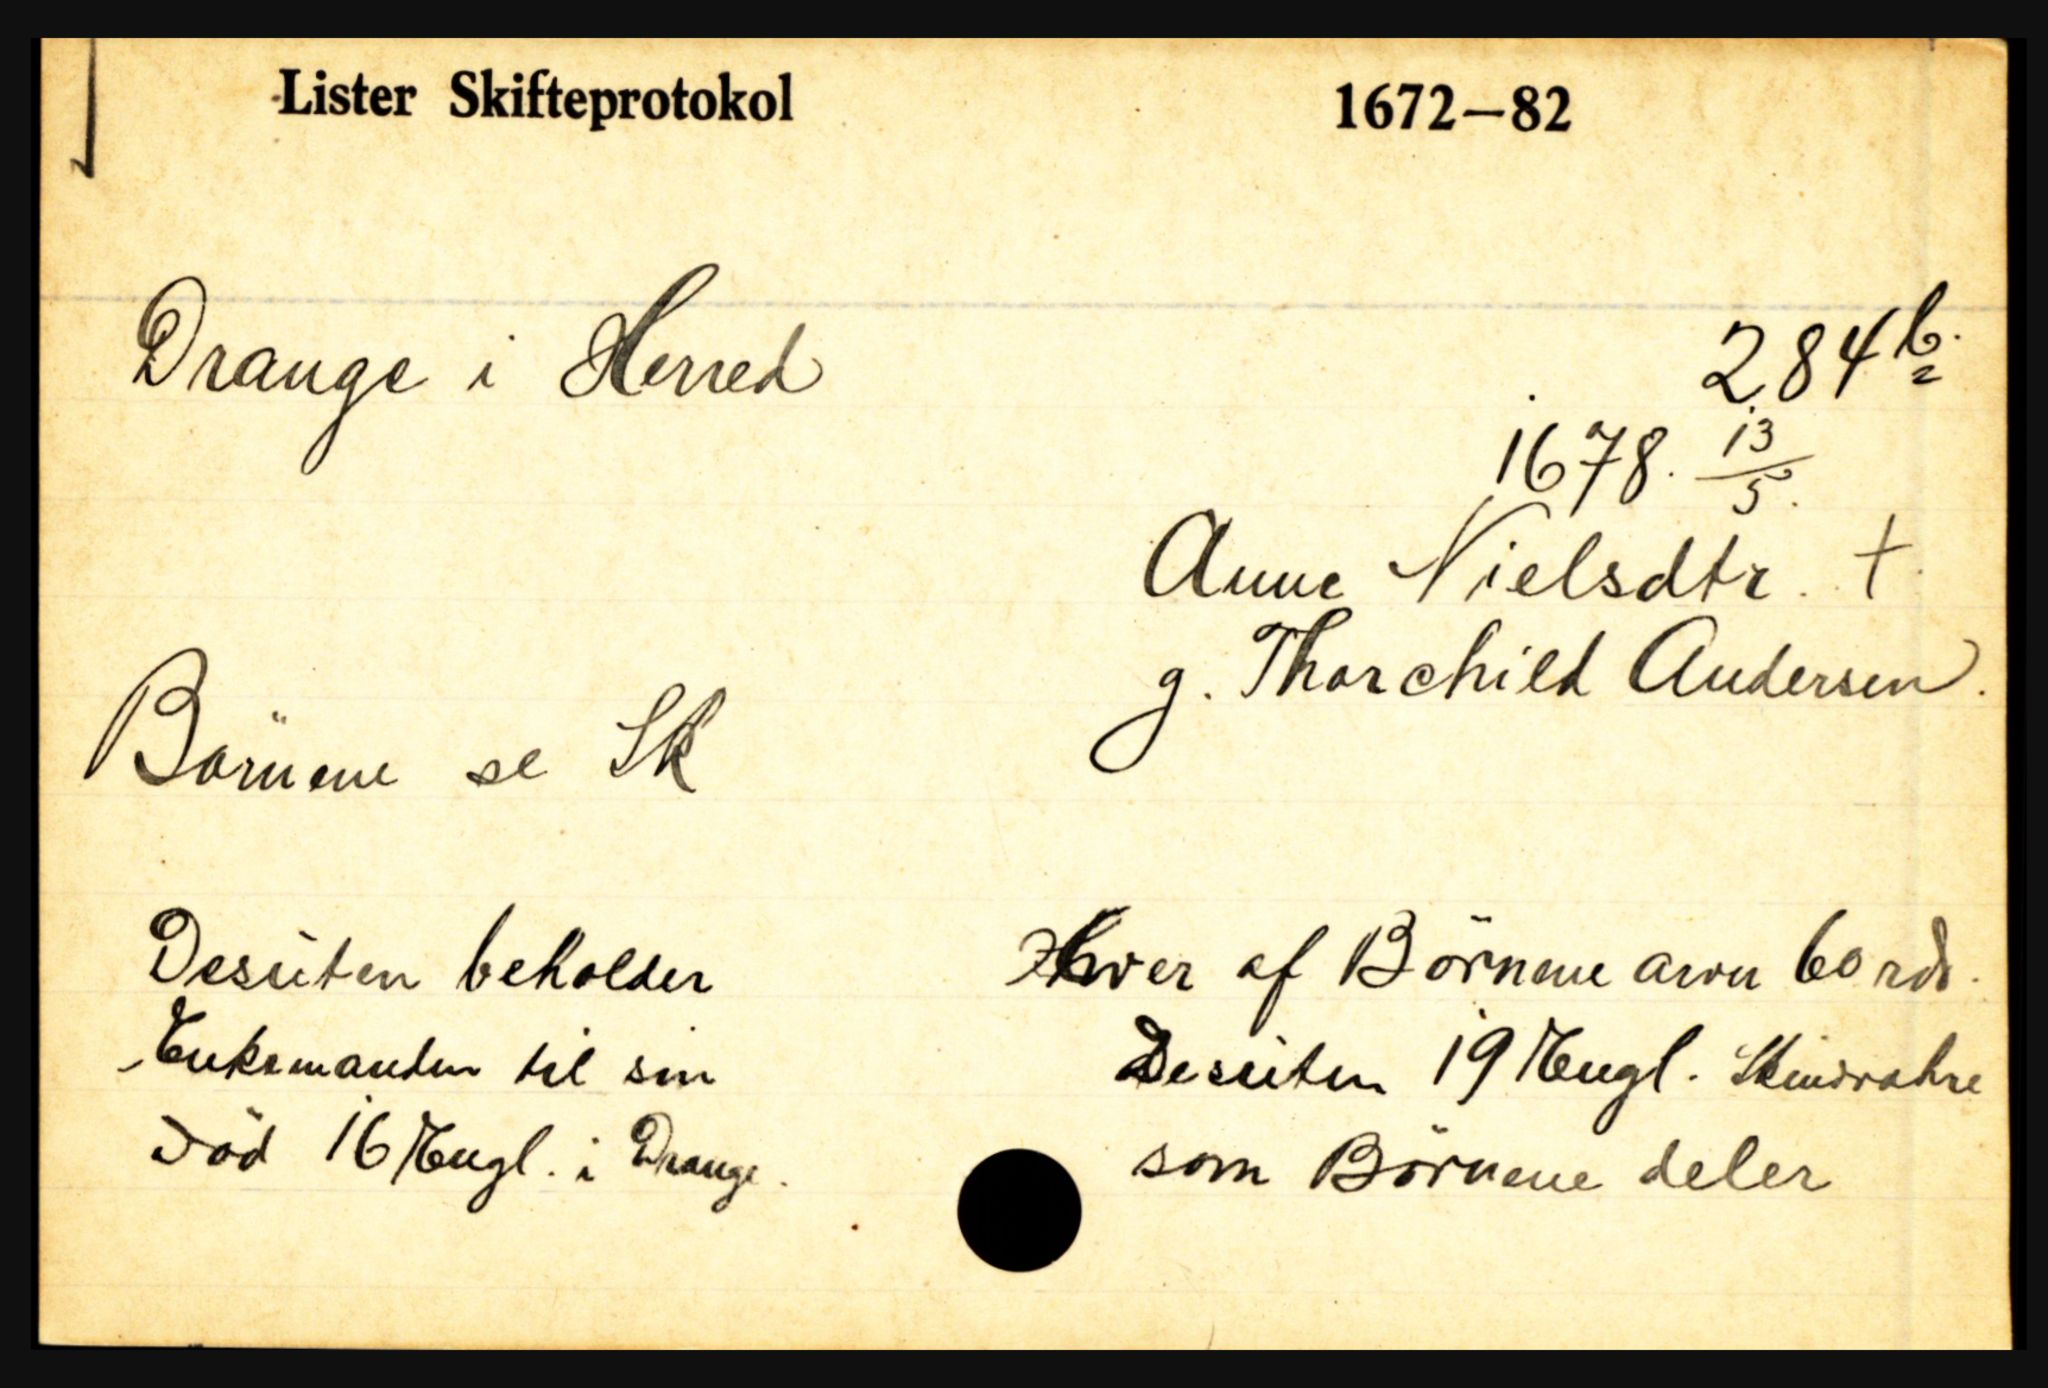 Lister Skifteprotokol 1672–82
Drange i Herred
284 b.
1678. 13/5.
Anne Nielsdtr. †.
g. Thorchild Andersen.
Börnene se Sk
Desuten beholder
Enkemanden til sin
Död 16 Engl. i Drange.
Hver af Börnene arver 60 rd.
Desuten 19 Engl.
som Börnene deler